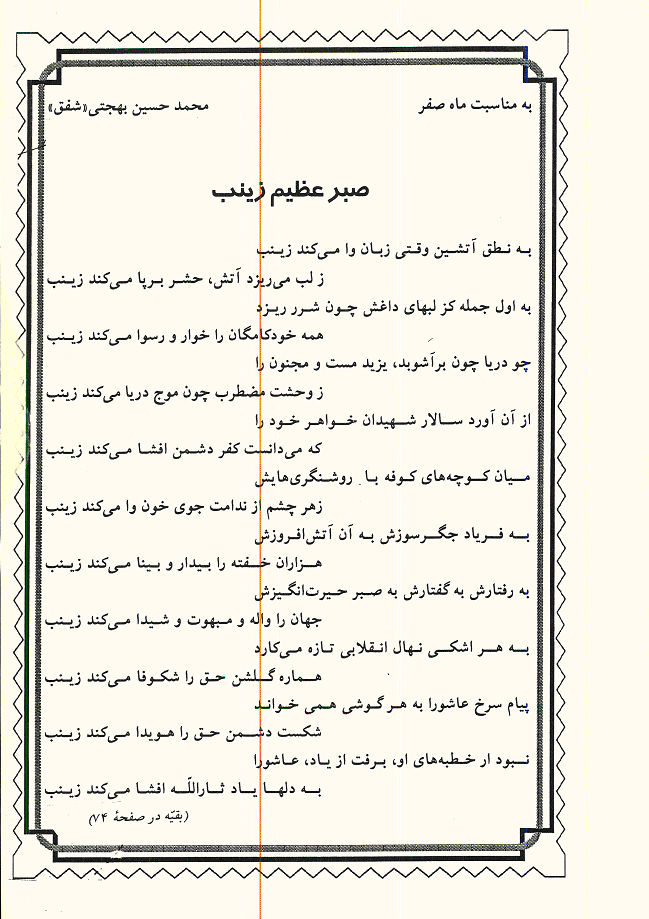 به مناسبت ماه صفر
محمد حسین بهجتی«شفق»
صبر عظیم زینب
به نطق آتشین وقتی زبان وا می‌کند زینب
ز لب می‌ریزد آتش، حشر برپا می‌کند زینب
به اول جمله کز لبهای داغش چون شرر ریزد
همه خودکامگان را خوار و رسوا می‌کند زینب
چو دریا چون برآشوبد، یزید مست و مجنون را
ز وحشت مضطرب چون موج دریا می‌کند زینب
از آن آورد سالار شهیدان خواهر خود را
که می‌دانست کفر دشمن افشا می‌کند زینب
میان کوچه‌های کوفه با روشنگری‌هایش
زهر چشم از ندامت جوی خون وا می‌کند زینب
به فریاد جگرسوزش به آن آتش‌افروزش
هزاران خفته را بیدار و بینا می‌کند زینب
به رفتارش به گفتارش به صبر حیرت‌انگیزش
جهان را واله و مبهوت و شیدا می‌کند زینب
به هر اشکی نهال انقلابی تازه می‌کارد
هماره گلشن حق را شکوفا می‌کند زینب
پیام سرخ عاشورا به هر گوشی همی خواند
شکست دشمن حق را هویدا می‌کند زینب
نبود ار خطبه‌های او، برفت از یاد، عاشورا
به دلها یاد ثاراللّه افشا می‌کند زینب
(بقیّه در صفحهٔ ۷۴)